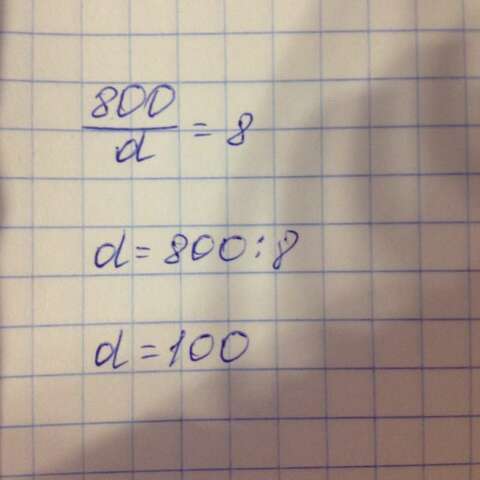 800/d = 8
d = 800 : 8
d = 100